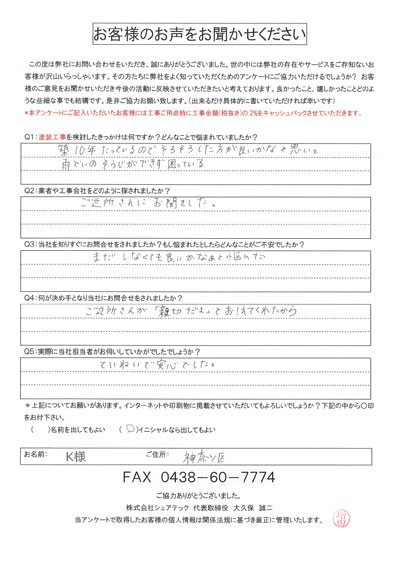 お客様のお声をお聞かせください
この度は弊社をお問い合わせをいただき、誠にありがとうございました。世の中には弊社の存在やサービスをご存知ないお
客様が沢山いらっしゃいます。その方たちに弊社をよく知っていただくためのアンケートにご協力いただけるでしょうか？ お客
様のご意見をお聞かせいただき今後の活動に反映させていただきたいと考えております。良かったこと、嬉しかったことどのよ
うな些細な事でも結構です。是非ご協力お願い致します。（出来るだけ具体的に書いていただければ幸いです）
*本アンケートにご記入いただいたお客様には工事ご用命時に工事金額(税抜き)の 2%をキャッシュバックさせていただきます。
Q1：塗装工事を検討したきっかけは何ですか？どんなことで悩まれていましたか？
築10年たっているのでそろそろした方が良いかなと思い。
雨どいのそうじができず困っている
Q2：業者や工事会社をどのように探されましたか？
ご近所さんにお聞きました。
Q3：当社を知りすぐにお問合せをされましたか？もし悩まれたとしたらどんなことがご不安でしたか？
まだしなくても良いかなあと悩んだ
Q4：何が決め手となり当社にお問合せをされましたか？
ご近所さんが「親切だよ」とおしえてくれたから
Q5：実際に当社担当者がお伺いしていかがでしたでしょうか？
ていねいで安心でした。
*上記についてお願いがあります。インターネットや印刷物に掲載させていただいてもよろしいでしょうか？下記の中から〇印
をお付下さい。
（ ）名前を出してもよい （〇）イニシャルなら出してもよい
お名前： K様 ご住所： 神奈川区
FAX 0438-60-7774
ご協力ありがとうございました。
株式会社シェアテック 代表取締役 大久保 誠二
当アンケートで取得したお客様の個人情報は関係法規に基づき厳正に管理いたします。